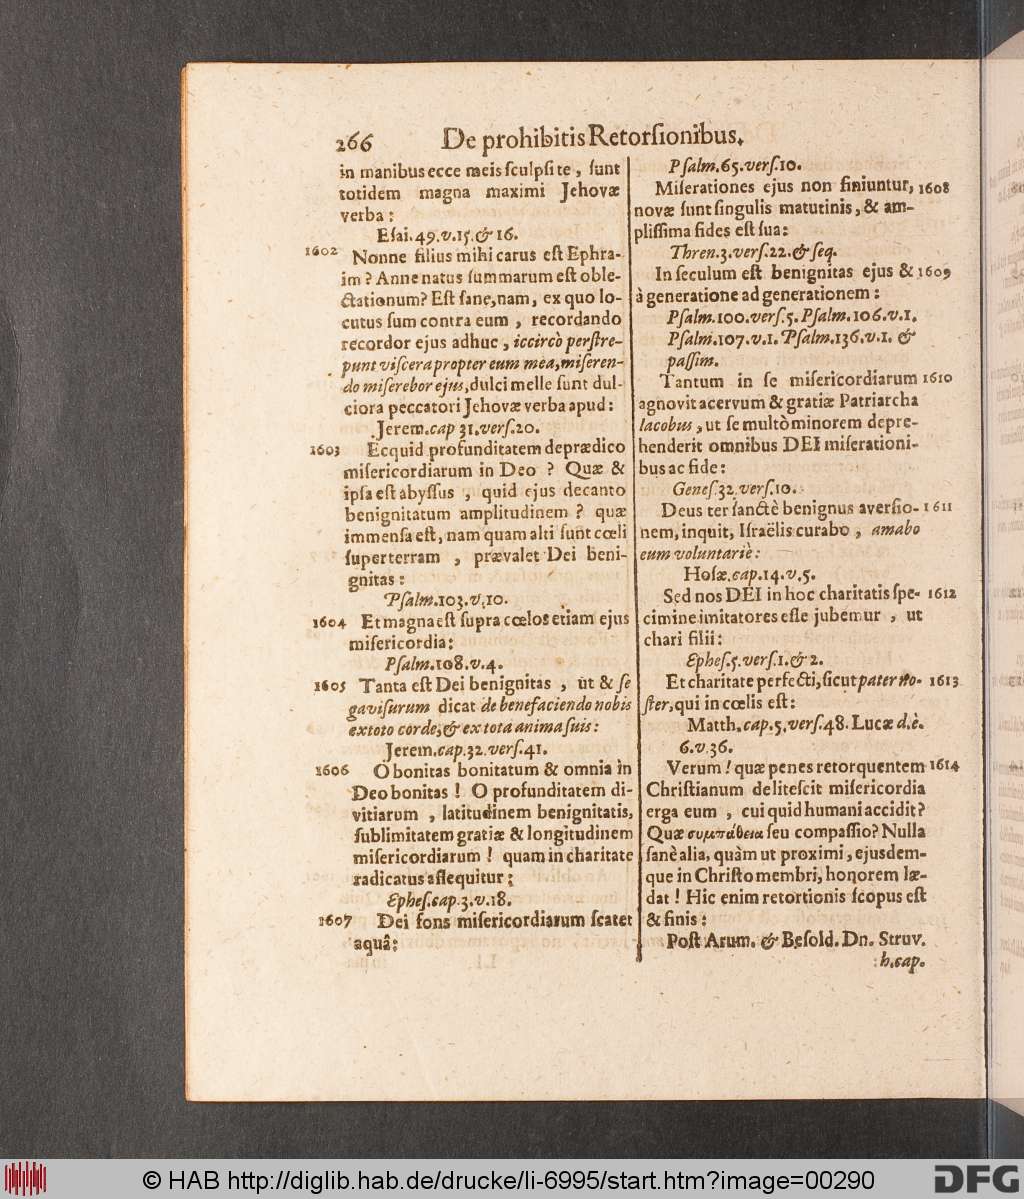 266 De prohibitis Retorſionibus.
in manibus ecce meis ſculpſi te, ſunt
totidem magna maximi Jehovæ
verba:
Eſai. 49. v. 15. & 16.
1602 Nonne filius mihi carus eſt Ephra-
im? Anne natus ſummarum eſt oble-
ctationum? Eſt ſane, nam, ex quo lo-
cutus ſum contra eum, recordando
recordor ejus adhuc, iccircò perſtre-
punt viſcera propter eum mea, miſeren-
do miſerebor ejus, dulci melle ſunt dul-
ciora peccatori Jehovæ verba apud:
Jerem. cap 31. verſ. 20.
1603 Ecquid profunditatem deprædico
miſericordiarum in Deo? Quæ &
ipſa eſt abyſſus, quid ejus decanto
benignitatum amplitudinem? quæ
immenſa eſt, nam quam alti ſunt cœli
ſuper terram, prævalet Dei beni-
gnitas:
Pſalm. 103. v. 10.
1604 Et magna eſt ſupra cœlos etiam ejus
miſericordia:
Pſalm. 108. v. 4.
1605 Tanta eſt Dei benignitas, ut & ſe
gaviſurum dicat de benefaciendo nobis
ex toto corde, & ex tota anima ſuis:
Jerem. cap. 32. verſ. 41.
1606 O bonitas bonitatum & omnia in
Deo bonitas! O profunditatem di-
vitiarum, latitudinem benignitatis,
ſublimitatem gratiæ & longitudinem
miſericordiarum! quam in charitate
radicatus aſſequitur:
Epheſ. cap. 3. v. 18.
1607 Dei fons miſericordiarum ſcatet
aquâ:
Pſalm. 65. verſ. 10.
Miſerationes ejus non finiuntur, 1608
novæ ſunt ſingulis matutinis, & am-
pliſſima fides eſt ſua:
Thren. 3. verſ. 22. & ſeq.
In ſeculum eſt benignitas ejus & 1609
à generatione ad generationem:
Pſalm. 100. verſ. 5. Pſalm. 106. v. 1.
Pſalm. 107. v. 1. Pſalm. 136. v. 1. &
paſſim.
Tantum in ſe miſericordiarum 1610
agnovit acervum & gratiæ Patriarcha
Iacobus, ut ſe multò minorem depre-
henderit omnibus DEI miſerationi-
bus ac fide:
Geneſ. 32. verſ. 10.
Deus ter ſanctè benignus averſio- 1611
nem, inquit, Iſraëlis curabo, amabo
eum voluntariè:
Hoſæ. cap. 14. v. 5.
Sed nos DEI in hoc charitatis ſpe- 1612
cimine imitatores eſſe jubemur, ut
chari filii:
Epheſ. 5. verſ. 1. & 2.
Et charitate perfecti, ſicut pater no- 1613
ſter, qui in cœlis eſt:
Matth. cap. 5. verſ. 48. Lucæ d. è.
6. v. 36.
Verum! quæ penes retorquentem 1614
Chriſtianum deliteſcit miſericordia
erga eum, cui quid humani accidit?
Quæ συμπάθεια ſeu compaſſio? Nulla
ſanè alia, quàm ut proximi, ejusdem-
que in Chriſto membri, honorem læ-
dat! Hic enim retortionis ſcopus eſt
& finis:
Poſt Arum. & Beſold. Dn. Struv.
h. cap.
© HAB http://diglib.hab.de/drucke/li-6995/start.htm?image=00290
DFG